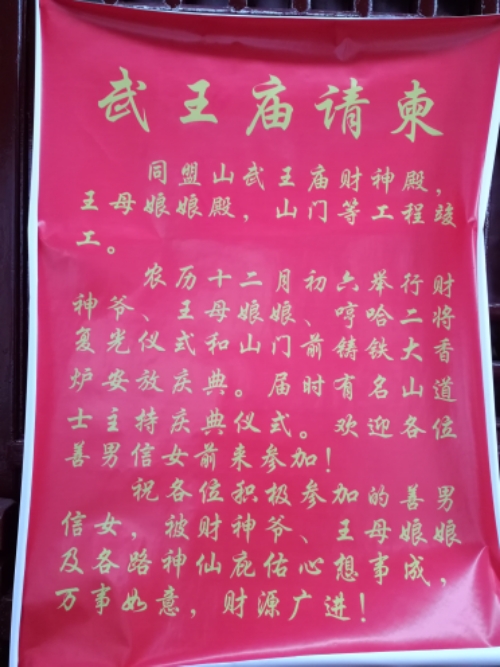 武王庙请柬
同盟山武王庙财神殿，
王母娘娘殿，山门等工程竣
工。
农历十二月初六举行财
神爷、王母娘娘、哼哈二将
复光仪式和山门前铸铁大香
炉安放庆典。届时有名山道
士主持庆典仪式。欢迎各位
善男信女前来参加！
祝各位积极参加的善男
信女，被财神爷、王母娘娘
及各路神仙庇佑心想事成，
万事如意，财源广进！